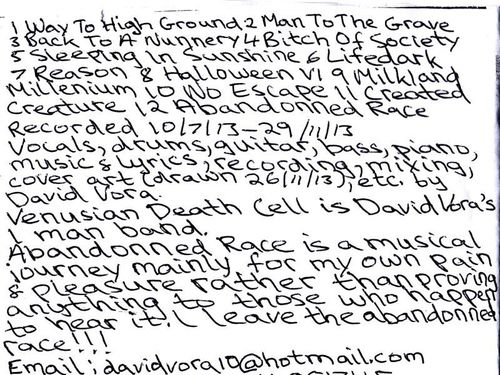 1 Way To High Ground 2 Man To The Grave
3 Back To A Nunnery 4 Bitch Of Society
5 Sleeping In Sunshine 6 Lifedark
7 Reason 8 Halloween VI 9 Milkland
Millenium 10 No Escape 11 Created
Creature 12 Abandonned Race
Recorded 10/7/13-29/11/13
Vocals, drums, guitar, bass, piano,
music & lyrics, recording, mixing,
cover art (drawn 26/11/13), etc. by
David Vora.
Venusian Death Cell is David Vora's
1 man band.
Abandonned Race is a musical
journey mainly for my own pain
& pleasure rather than proving
anything to those who happen
to hear it! I leave the abandonned
race!!!
Email: davidvora10@hotmail.com